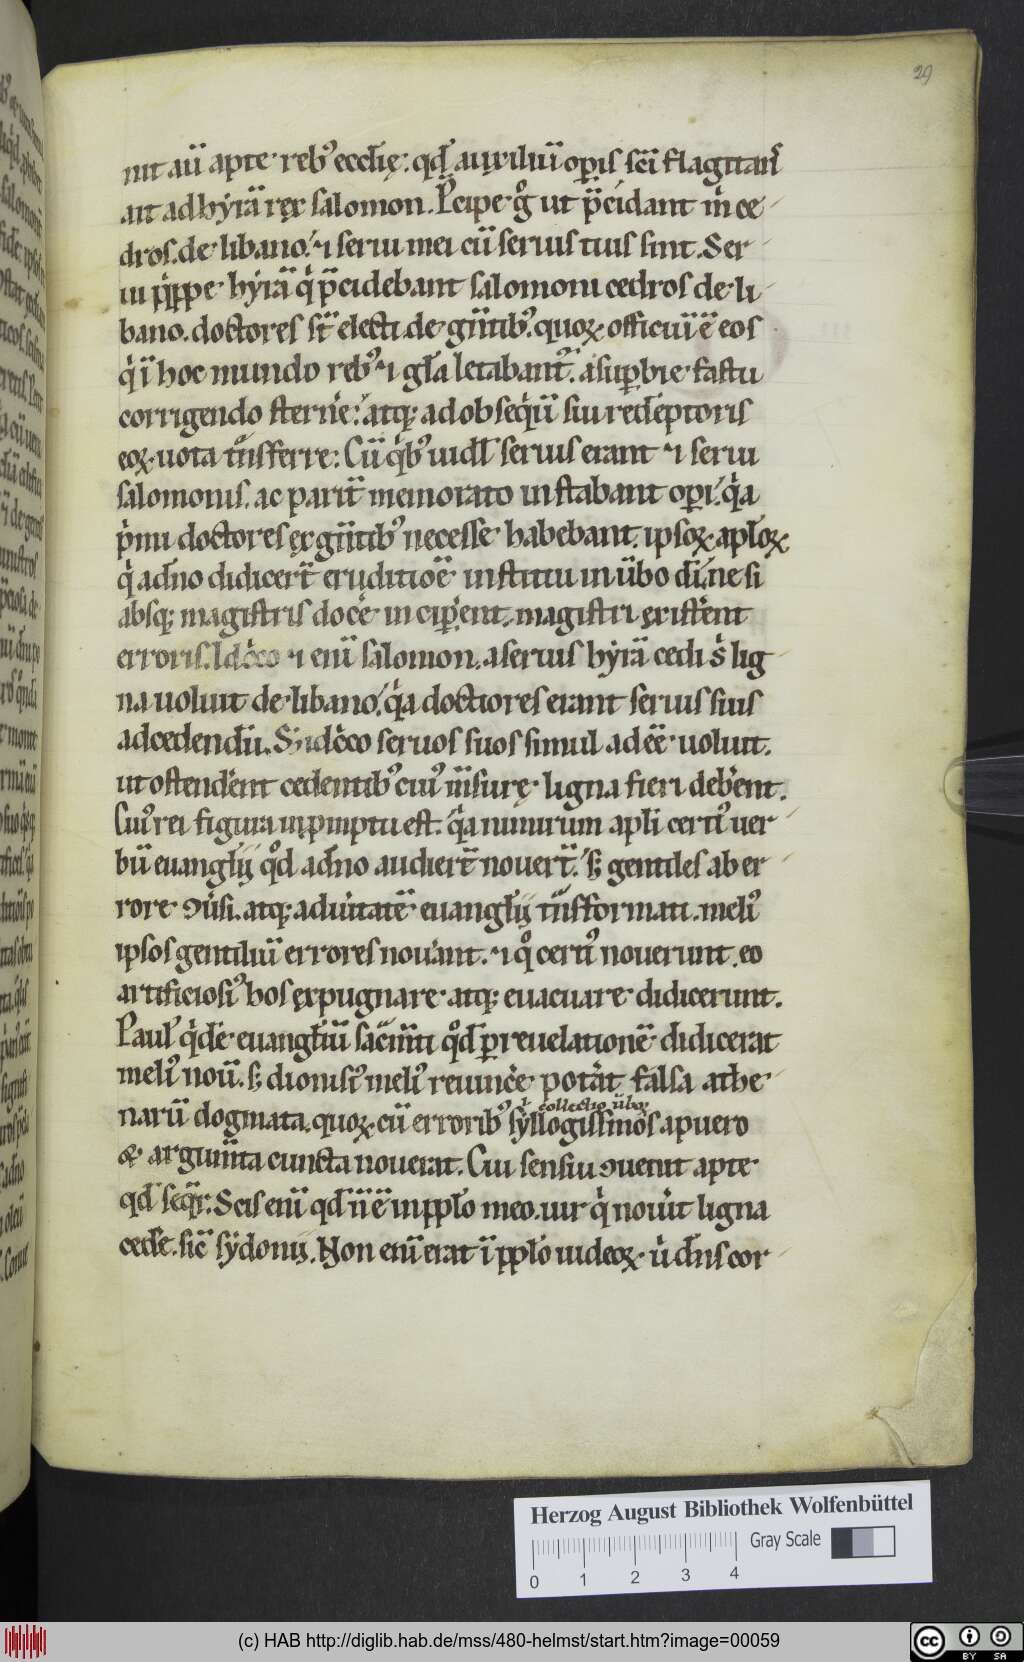 29
nit aū apte reb᷒ ecclīę. qd̄ auxiliū op̲is sc̄i flagitan᷑
ait ad hyrā rex salomon. P̄cipe gͦ ut p̄cidant m̍ ce
dros de libano. ⁊ serui mei cū seruis tuis sint. Ser
ui q̍ppe hyrā q̍ p̄cidebant salomoni cedros de li
bano. doctores st̄ electi de gn̄tib᷒. quoꝝ officiū ē eos
q̍ ī hoc mundo reb᷒ ⁊ gl̄a letabant᷑. a sup̲bie fastu
corrigendo sterne᷑. atq; ad obseq̍ū sui redēptoris
eoꝝ uota t̄nsferre. Cū q̍b᷒ uidl̄ seruis erant ⁊ serui
salomonis. ac parit̄ memorato instabant op̲i. q̍a
p̍mi doctores ex gn̄tib᷒ necesse habebant. ipsoꝝ apl̄oꝝ
q̍ a dn̄o didicer̄t eruditiōe institui in ūbo di. ne si
absq; magistris docē incip̲ent. magistri existēnt
erroris. Idcͦco ⁊ enī salomon. a seruis hyrā cedi s̍ lig
na uoluit de libano. q̍a doctiores erant seruis suis
ad cedendū. S; idcͦco seruos suos simul adeē uoluit.
ut ostendēnt cedentib᷒ cui᷒ m̄surę ligna fieri debēnt.
Cui᷒ rei figura inp̲mptu est. q̍a nimirum apl̄i certi᷒ uer
bū euangl̄ii qͦd a dn̄o audier̄t nouer̄t. s; gentiles ab er
rore ꝯūsi. atq; ad ūitatē euangl̄ii t̄nsformati. meli᷒
ipsos gentiliū errores nouānt. ⁊ qͦ certi᷒ nouerunt. eo
artificiosi᷒ hos expugnare atq; euacuare didicerunt.
Paul᷒ q̍dē euangl̄iū sac̄m̄ti qͦd p̲ reuelationē didicerat
meli᷒ nou̍. s; dionisi᷒ meli᷒ reuincē potāt falsa athe
l̵ collectio ūboꝝ
narū dogmata. quoꝝ cū errorib᷒ syllogissmos a puero
& argum̄ta cuncta nouerat. Cui sensui ꝯuenit apte
qd̄ seq̍t᷑. Scis enī qd̄ n̄ ē in pp̲lo meo. uir q̍ nou̍it ligna
cedē. sic̄ sydonii. Non enī erat ī pp̲lo iudeoꝝ u̍ dn̄s cor
Herzog August Bibliothek Wolfenbüttel
Gray Scale
0 1 2 3 4
(c) HAB http://diglib.hab.de/mss/480-helmst/start.htm?image=00059
cc BY SA